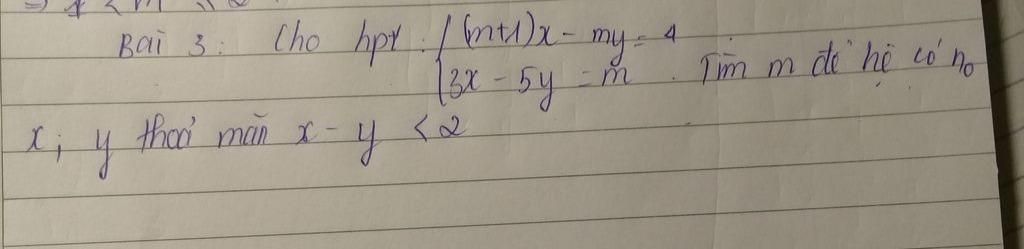 Bài 3: Cho hpt: { (m+1)x - my = 4
{ 3x - 5y = m. Tìm m để hệ có no
x; y thoả mãn x - y < 2